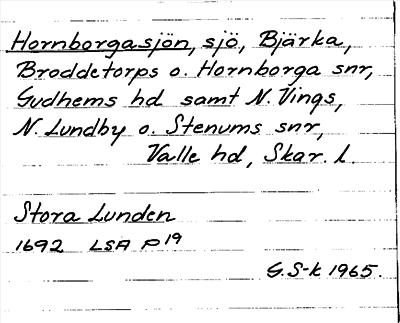 Hornborgasjön, sjö, Bjärka,
Broddetorps o. Hornborga snr,
Gudhems hd samt N. Vings,
N. Lundby o. Stenums snr,
Valle hd, Skar. l.
Stora Lunden
1692 LSA P19
G. S-k 1965.